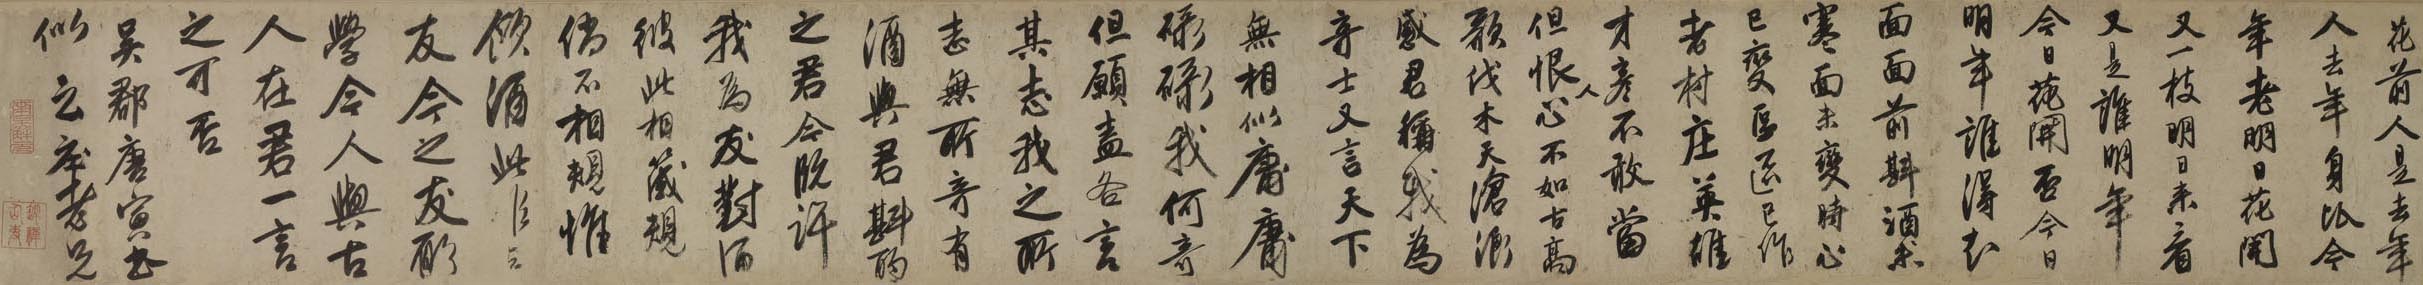 花前人是去年
人去年身比今
年老明日花開
又一枝明日來看
又是誰明年
今日花開否今日
明年誰得知
面面前斟酒未
寒面未變時心
已變區區已作
者村庄英雄
才彥不敢當
但恨人心不如古高
歌伐木天滄浪
感君稱我為
奇士又言天下
無相似庸庸
碌碌我何奇
但願盡各言
其志我之所
志無所奇有
酒與君斟酌
之君今既許
我為友對酒
彼此相箴規
倘不相規惟
飲酒此
友今之友耶
學今人與古
人在君一言
之可否
吳郡唐寅書
似之老兄